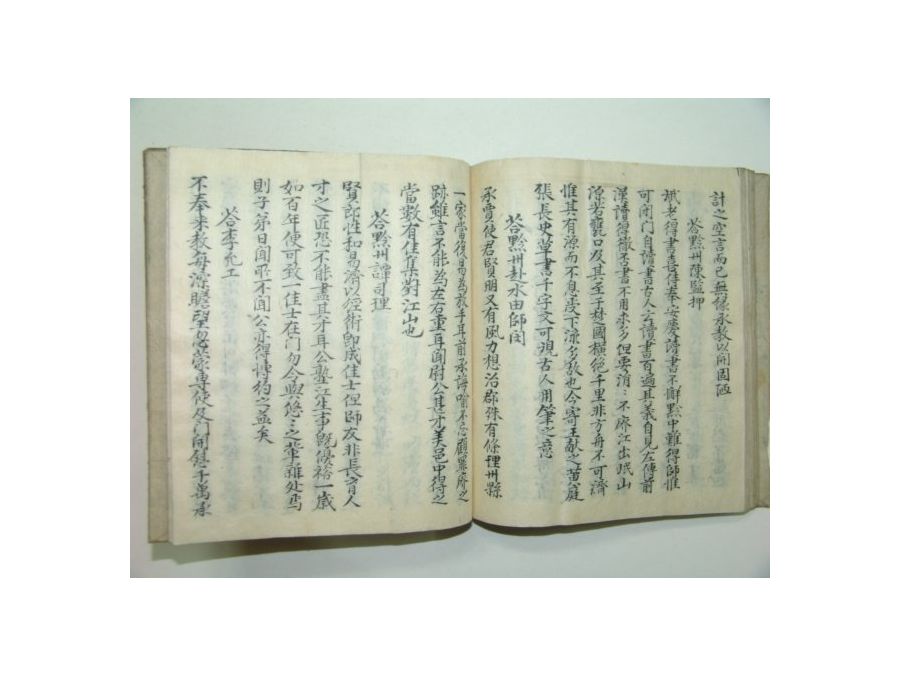 計之空言而已無緣承教以開固陋
答黔州陳監押
斌老得書喜侍奉安慶讀書不懈黔中難得師惟
可閉門自讀書古人云讀書百遍其義自見左傳前
漢讀得徹否書不用求多但要涓〻不廢江出岷山
源若甕口及其至于楚國橫絕千里非方舟不可濟
惟其有源而不息受下流多故也今寄王献之黃庭
張長史草書千字文可觀古人用筆之意
答黔州赴水由師
承賈使君賢明又有風力想治郡殊有條理州縣
一家當復易為放手耳前承誨喻不忘顧罪廢之
跡雖言不能為左右重耳聞尉公甚才美邑中得之
當數有佳集對江山也
答黔州譚司理
賢郎性和易濟以經術卽成佳士但師友非長育人
才之匠恐不能盡其才耳公塾江生事旣優裕一歲
如百年便可致一佳士在門勿令與悠〻之輩雜处焉
則子弟日聞所不聞公亦得博約之益矣
答李充工
不奉來教每深瞻望忽蒙專使及門開慰千萬承